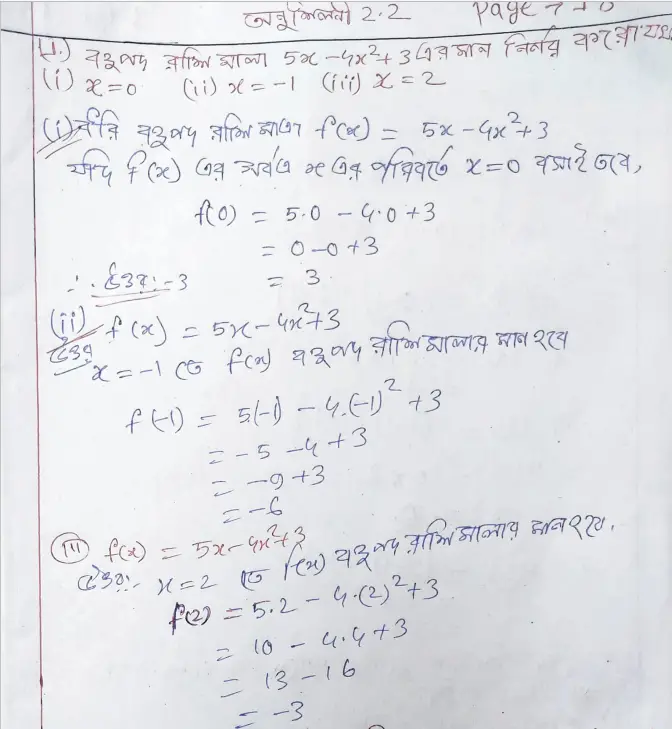 অনুশিলনী 2.2 Page
(1.) বহুপদ রাশিমালা 5x - 4x²+3 এর মান নির্নয় করো যখন
(i) x=0 (ii) x = -1 (iii) x = 2
(i) ধরি বহুপদ রাশিমালা f(x) = 5x - 4x²+3
যদি f(x) এর সর্বত্র x এর পরিবর্তে x=0 বসাই তবে,
f(0) = 5.0 - 4.0 +3
= 0-0+3
∴ উত্তর:- 3 = 3.
(ii) f(x) = 5x - 4x²+3
উত্তর x = -1 তে f(x) বহুপদ রাশিমালার মান হবে
f(-1) = 5(-1) - 4.(-1)² +3
= -5 -4 +3
= -9 +3
= -6
(iii) f(x) = 5x - 4x²+3
উত্তর:- x=2 তে f(x) বহুপদ রাশিমালার মান হবে.
f(2) = 5.2 - 4.(2)²+3.
= 10 - 4.4 +3
= 13 - 16
= -3